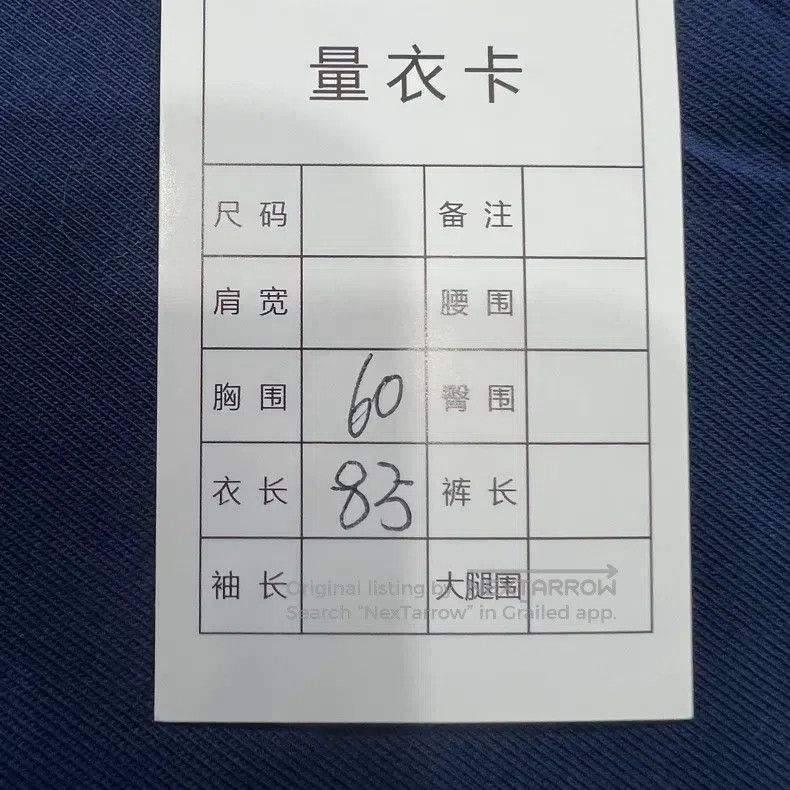 量衣卡
尺码 备注
肩宽 腰围
胸围 60 臀围
衣长 85 裤长
袖长 大腿围
Original listing by NEXTARROW
Search "NexTarrow" in Grailed app.